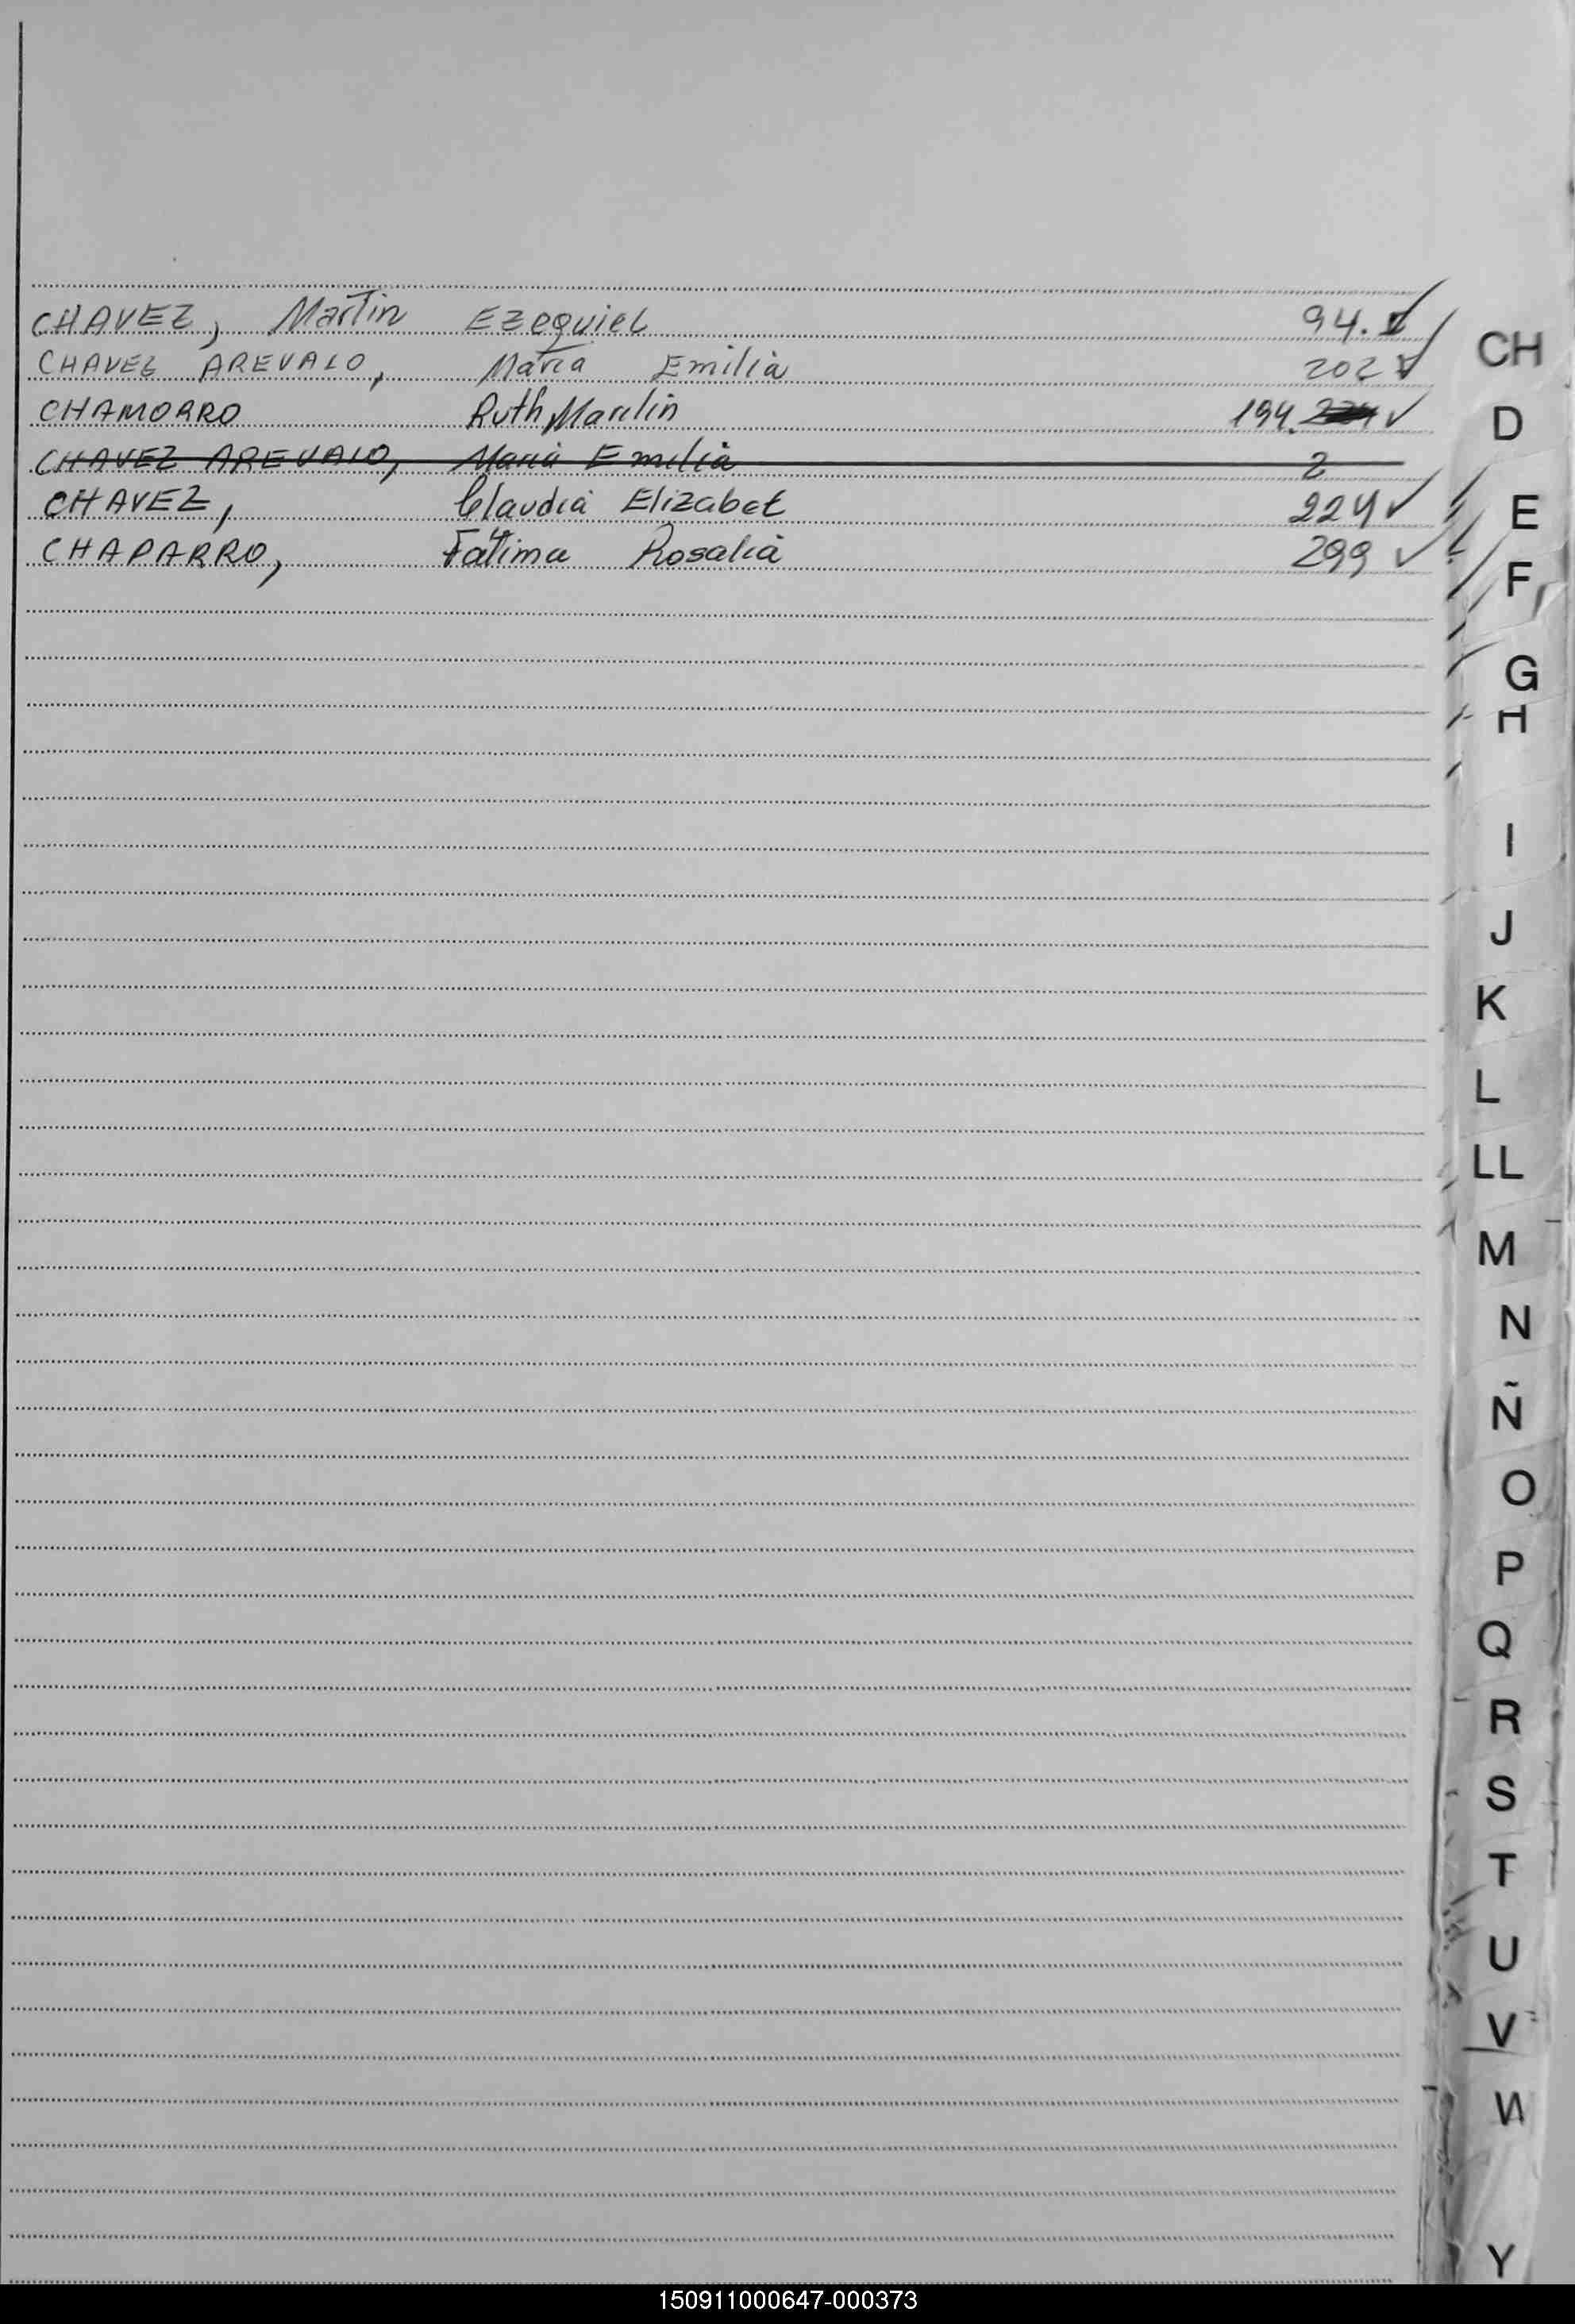 CHAVEZ, Martin Ezequiel 94. ✓
CHAVEZ AREVALO, Maria Emilia 202 ✓
CHAMORRO Ruth Marilin 194. ✓
CHAVEZ AREVALO, Maria Emilia 2
CHAVEZ, Claudia Elizabet 224 ✓
CHAPARRO, Fátima Rosalia 299 ✓
CH
D
E
F
G
H
I
J
K
L
LL
M
N
Ñ
O
P
Q
R
S
T
U
V
W
Y
150911000647-000373